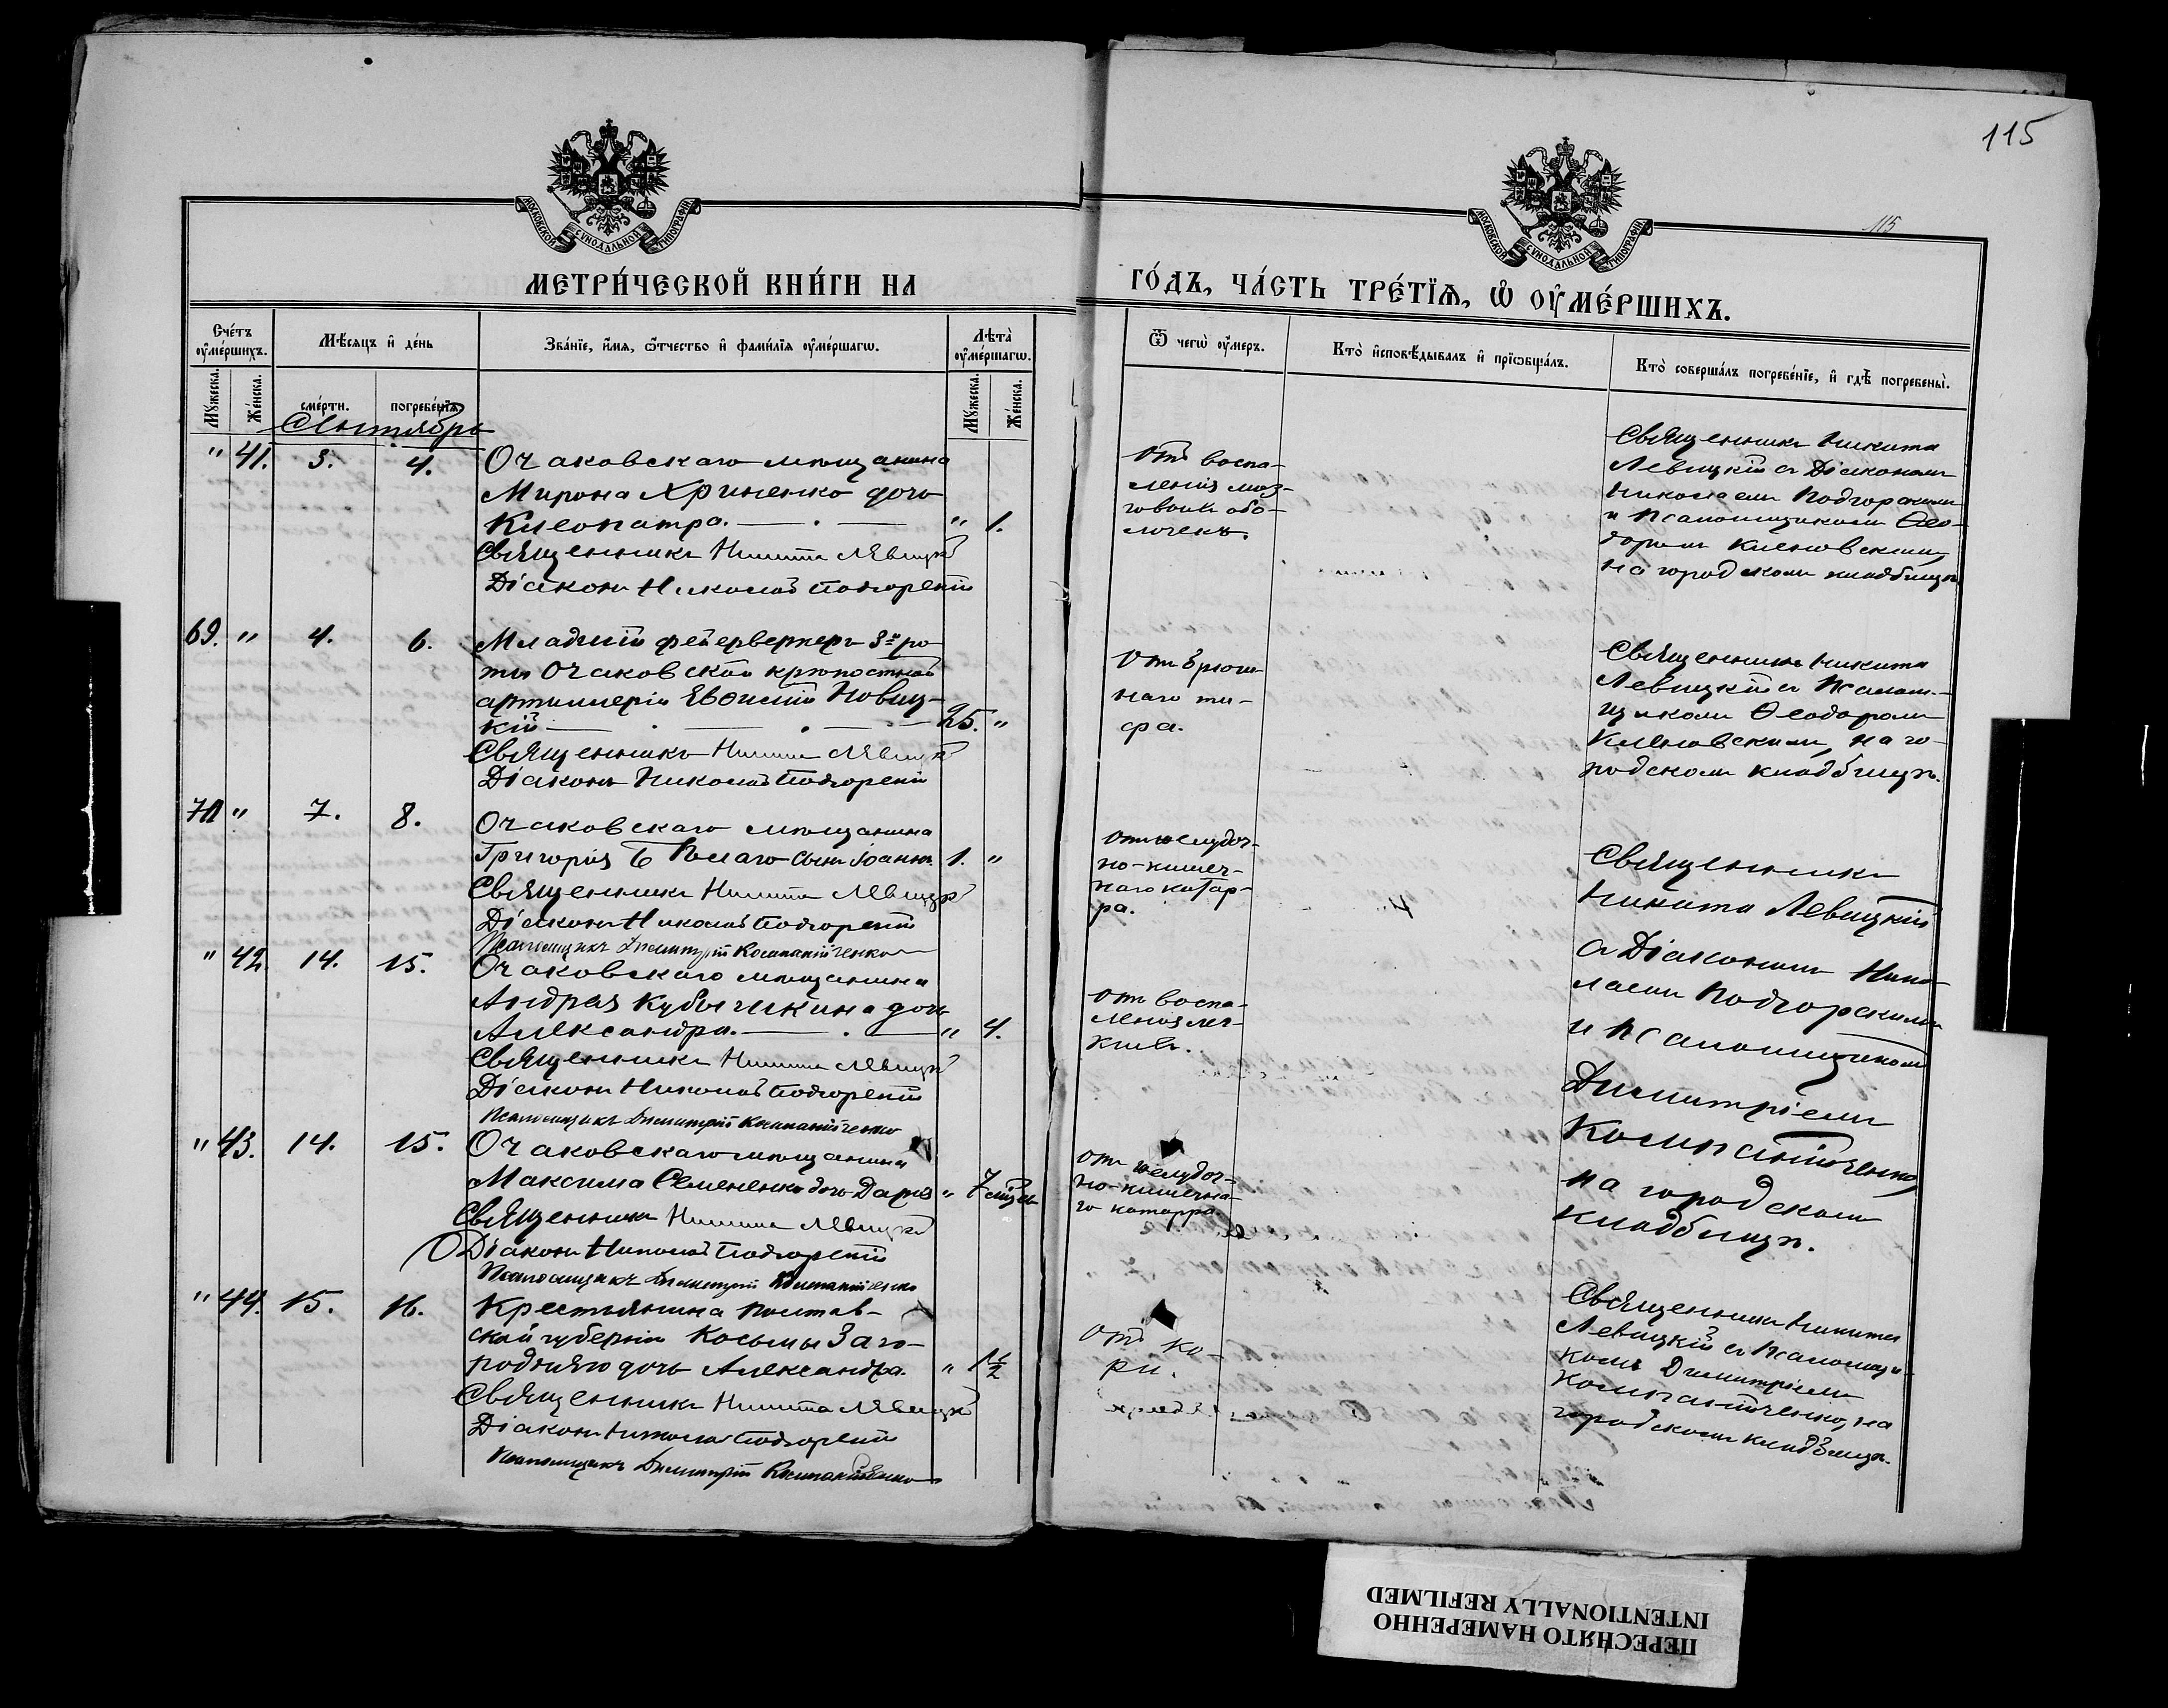 115
115
МОСКОВСКОЙ СУНОДАЛЬНОЙ ТИПОГРАФІИ
МОСКОВСКОЙ СУНОДАЛЬНОЙ ТИПОГРАФІИ
МЕТРИ́ЧЕСКОЙ КНИ́ГИ НА
ГО́ДЪ, ЧА́СТЬ ТРЕ́ТІѦ, Ѡ҆ ОУ҆МЕ́РШИХЪ.
Сче́тъ оу҆ме́ршихъ.
Мѣ́сяцъ и҆ де́нь
Зва́нїе, и҆́мя, ѻ҆́тчество и҆ фами́лїя оу҆ме́ршагѡ.
Лѣта̀ оу҆ме́ршагѡ.
Мꙋ́жеска.
Же́нска.
сме́рти.
погребе́нїѧ.
Мꙋ́жеска.
Же́нска.
Ѿ чегѡ̀ оу҆́меръ.
Кто̀ и҆сповѣ́дывалъ и҆ прїѡбща́лъ.
Кто̀ соверша́лъ погребе́нїе, и҆ гдѣ̀ погребены̀.
Сентябрь
" 41. 3. 4. Очаковскаго мѣщанина
Мирона Хриненко дочь
Клеопатра. " 1.
Священникъ Никита Левицкій
Діаконъ Николай Подгорскій
Отъ воспа-
ленія моз-
говыхъ обо-
лочекъ.
Священникъ Никита
Левицкій съ Діакономъ
Николаемъ Подгорскимъ
и Псаломщикомъ Ѳео-
доромъ Кленовскимъ,
на городскомъ кладбищѣ.
69. " 4. 6. Младшій фейерверкеръ 3й ро-
ты Очаковской крѣпостной
артиллеріи Евѳимій Новиц-
кій 25. "
Священникъ Никита Левицкій
Діаконъ Николай Подгорскій
Отъ брюш-
наго ти-
фа.
Священникъ Никита
Левицкій съ Псалом-
щикомъ Ѳеодоромъ
Кленовскимъ, на го-
родскомъ кладбищѣ.
70 " 7. 8. Очаковскаго мѣщанина
Григорія Бѣлаго сынъ Іоаннъ. 1. "
Священникъ Никита Левицкій
Діаконъ Николай Подгорскій
Псаломщикъ Димитрій Компанійченко
Отъ желудоч-
но-кишеч-
наго катар-
ра.
Священникъ
Никита Левицкій
съ Діакономъ Нико-
лаемъ Подгорскимъ
и Псаломщикомъ
Димитріемъ
Компанійченко,
на городскомъ
кладбищѣ.
" 42. 14. 15. Очаковскаго мѣщанина
Андрея Кубышкина дочь
Александра. " 4.
Священникъ Никита Левицкій
Діаконъ Николай Подгорскій
Псаломщикъ Димитрій Компанійченко
Отъ воспа-
ленія лег-
кихъ.
" 43. 14. 15. Очаковскаго мѣщанина
Максима Семененко дочь Дарья " 7 мѣс.
Священникъ Никита Левицкій
Діаконъ Николай Подгорскій
Псаломщикъ Димитрій Компанійченко
Отъ желудоч-
но-кишечна-
го катарра
" 44. 15. 16. Крестьянина Полтав-
ской губерніи Косьмы Заго-
родняго дочь Александра. " 1½
Священникъ Никита Левицкій
Діаконъ Николай Подгорскій
Псаломщикъ Димитрій Компанійченко
Отъ ко-
ри.
Священникъ Никита
Левицкій съ Псаломщи-
комъ Димитріемъ
Компанійченко, на
городскомъ кладбищѣ.
ПЕРЕСНЯТО НАМЕРЕННО
INTENTIONALLY REFILMED